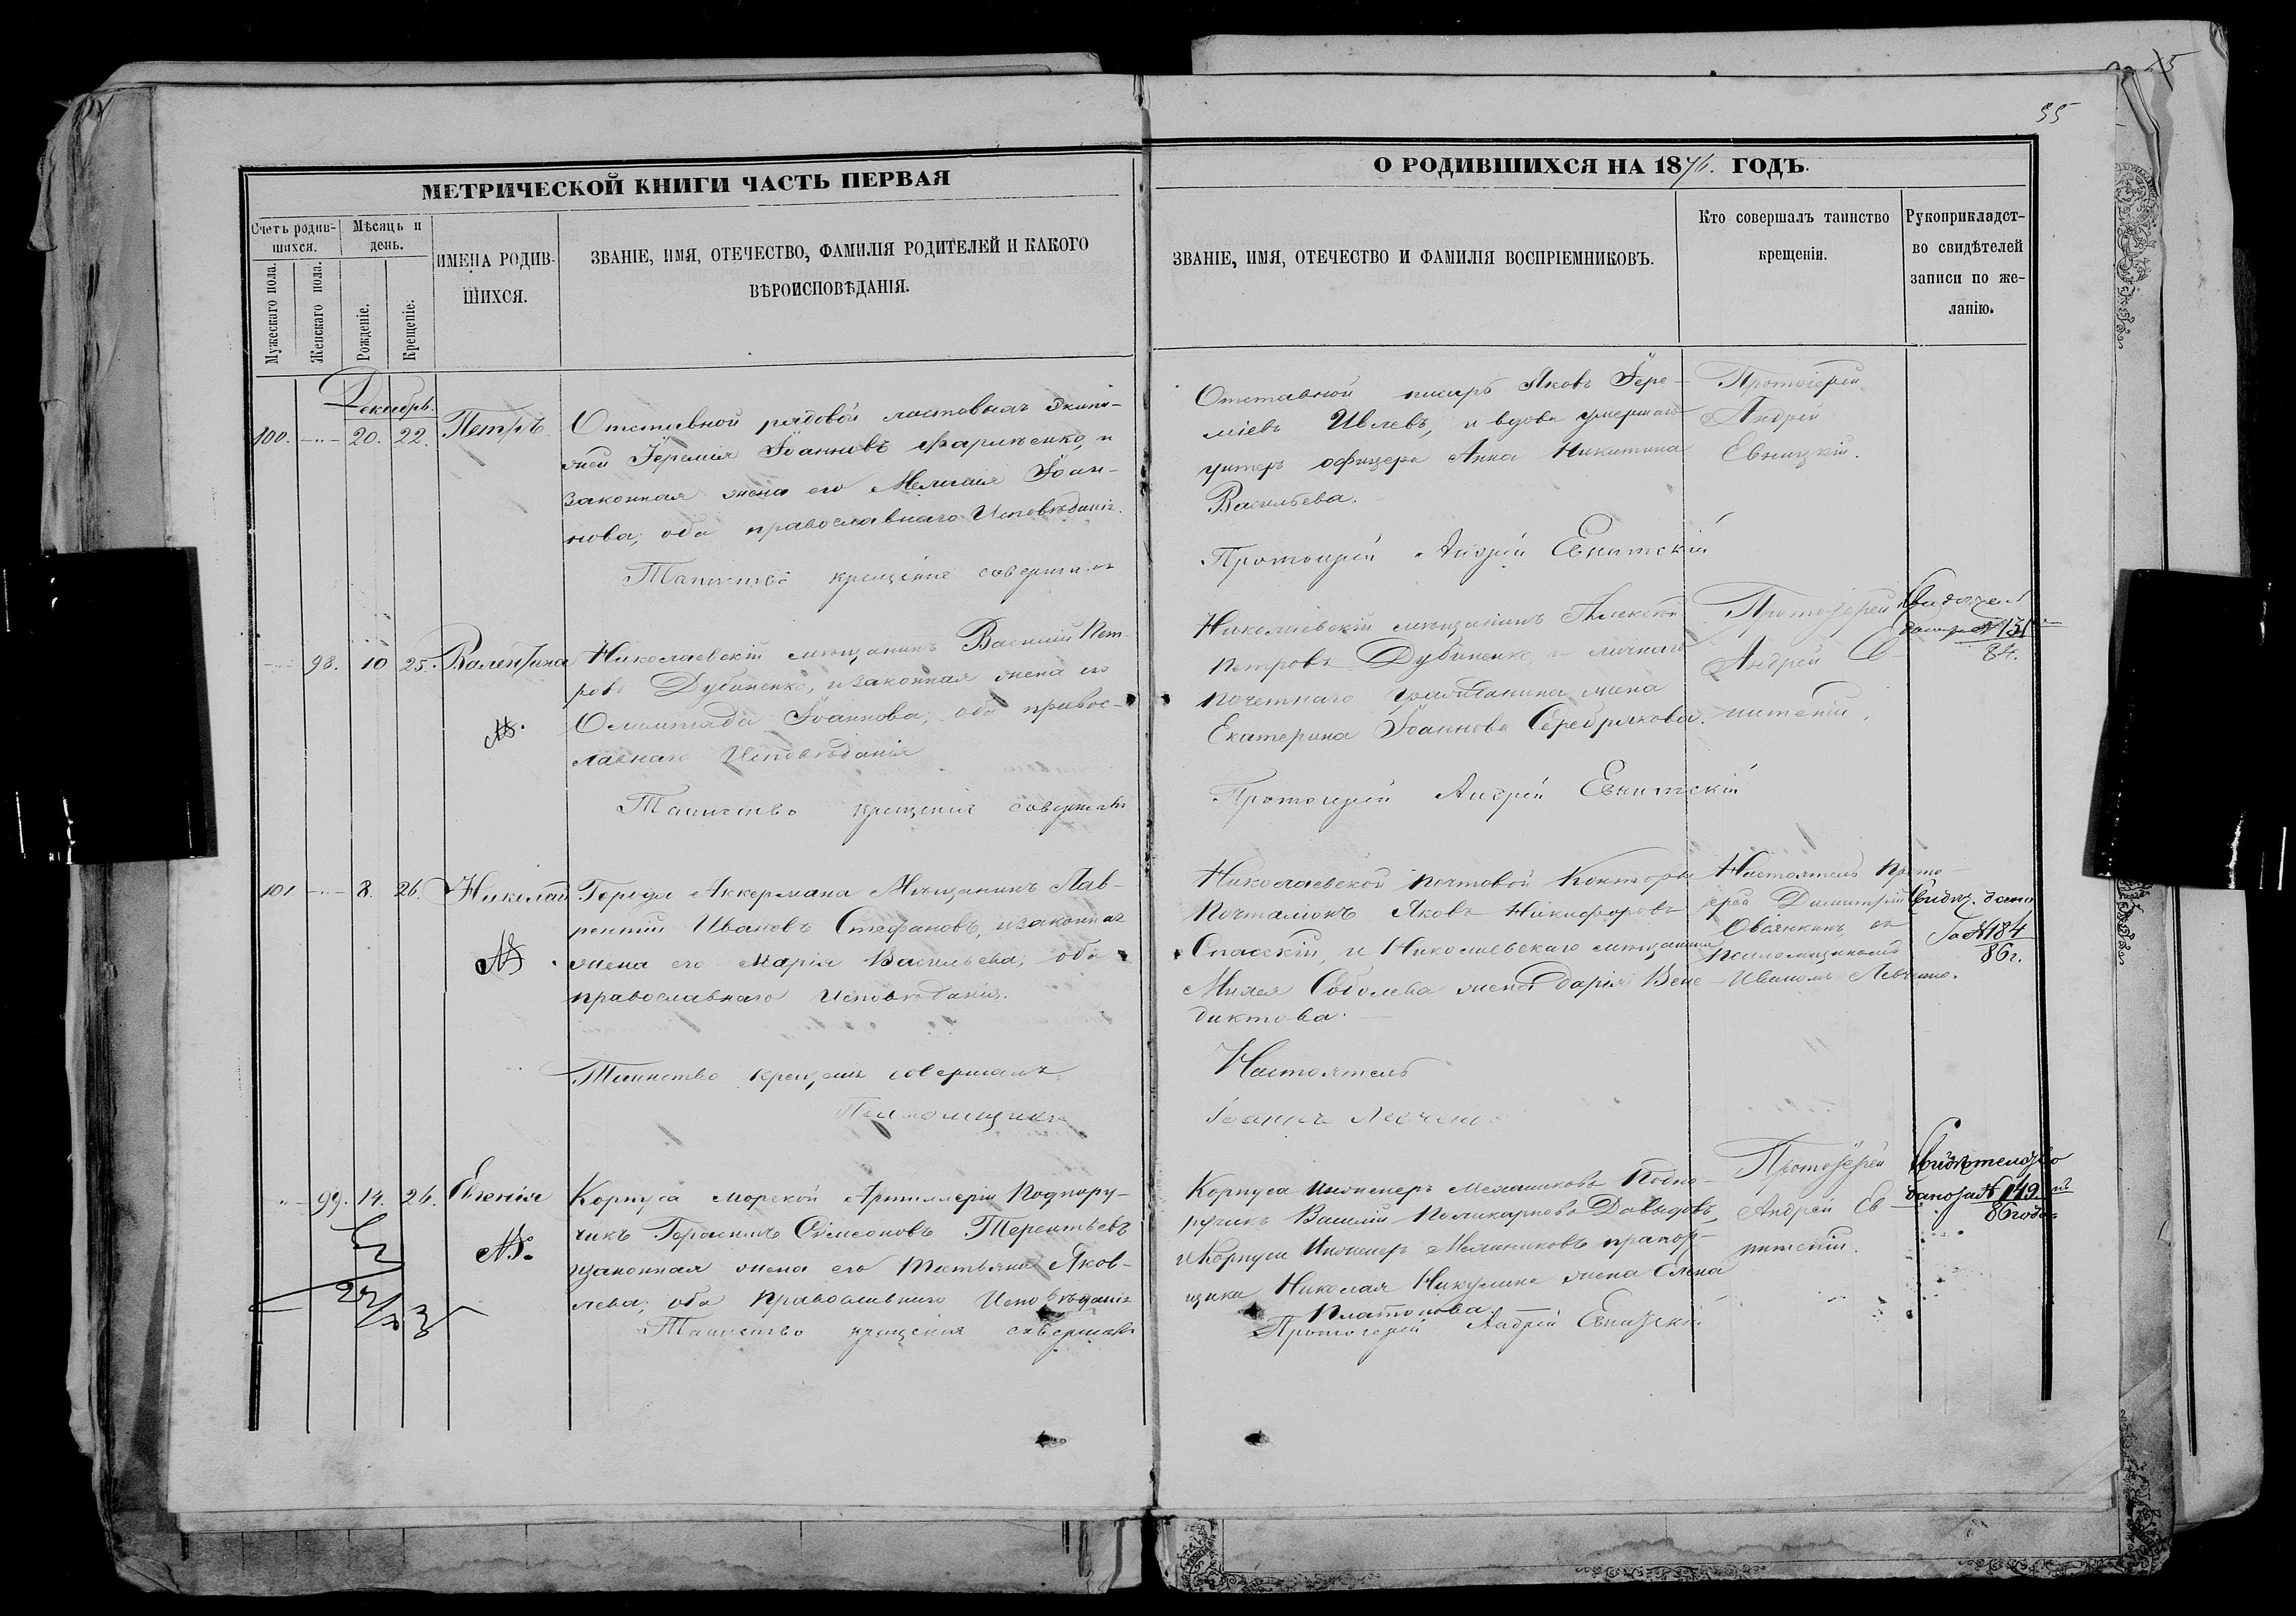 55
МЕТРИЧЕСКОЙ КНИГИ ЧАСТЬ ПЕРВАЯ
Счетъ родив-
шихся.
Мѣсяцъ и
день.
Мужескаго пола.
Женскаго пола.
Рожденіе.
Крещеніе.
ИМЕНА РОДИВ-
ШИХСЯ.
ЗВАНІЕ, ИМЯ, ОТЕЧЕСТВО, ФАМИЛІЯ РОДИТЕЛЕЙ И КАКОГО
ВѢРОИСПОВѢДАНІЯ.
О РОДИВШИХСЯ НА 1876. ГОДЪ.
ЗВАНІЕ, ИМЯ, ОТЕЧЕСТВО И ФАМИЛІЯ ВОСПРІЕМНИКОВЪ.
Кто совершалъ таинство
крещенія.
Рукоприкладст-
во свидѣтелей
записи по же-
ланію.
Декабрь.
100. 20. 22. Петръ
Отставной рядовой ластовыхъ экипа-
жей Іеремія Іоанновъ и
законная жена его Іоан-
нова, оба православнаго Исповѣданія.
Таинство крещенія совершилъ
Отставной писарь Яковъ Іере-
міевъ Ивлевъ, и вдова умершаго
унтеръ офицера Анна Никитина
Васильева.
Протоіерей Андрей Евнитскій
Протоіерей
Андрей
Евницкій.
98. 10 25. Валентина
Николаевскій мѣщанинъ Василій Пет-
ровъ Дубиненко, и законная жена его
Олимпіада Іоаннова, оба правос-
лавнаго Исповѣданія
Таинство крещенія совершалъ
Николаевскій мѣщанинъ Алексѣй
Петровъ Дубиненко и личнаго
почетнаго гражданина жена
Екатерина Іоаннова Серебрякова.
Протоіерей Андрей Евнитскій
Протоіерей
Андрей Е-
внитскій.
84.
101 8. 26. Николай
Города Аккермана Мѣщанинъ Лав-
рентій Ивановъ Стефановъ, и законная
жена его Марія Васильева, оба
православнаго Исповѣданія.
Таинство крещенія совершалъ
Псаломщикъ
Николаевской Почтовой Конторы
Почталіонъ Яковъ Никифоровъ
Спасскій, и Николаевскаго мѣщанина
Соболева жена Дарія Вене-
диктова.
Настоятель
Іоаннъ
Настоятель Прото-
іерей Димитрій
съ
псаломщикомъ
Иваномъ
Свидѣт. дано
За № 184
86 г.
99. 14. 26. Евгенія
Корпуса морской Артиллеріи Подпору-
чикъ Герасимъ Симеоновъ Терентьевъ
и законная жена его Татьяна Яков-
лева, оба Православнаго Исповѣданія
Таинство крещенія совершалъ
Корпуса Инженеръ Механиковъ Подпо-
ручикъ Василій Поликарповъ Давыдовъ,
и Корпуса Инженеръ Механиковъ прапор-
щика Николая Никулина жена Елена
Платонова.
Протоіерей Андрей Евницкій
Протоіерей
Андрей Ев-
нитскій.
Свидѣтельство
дано за № 149
86 года